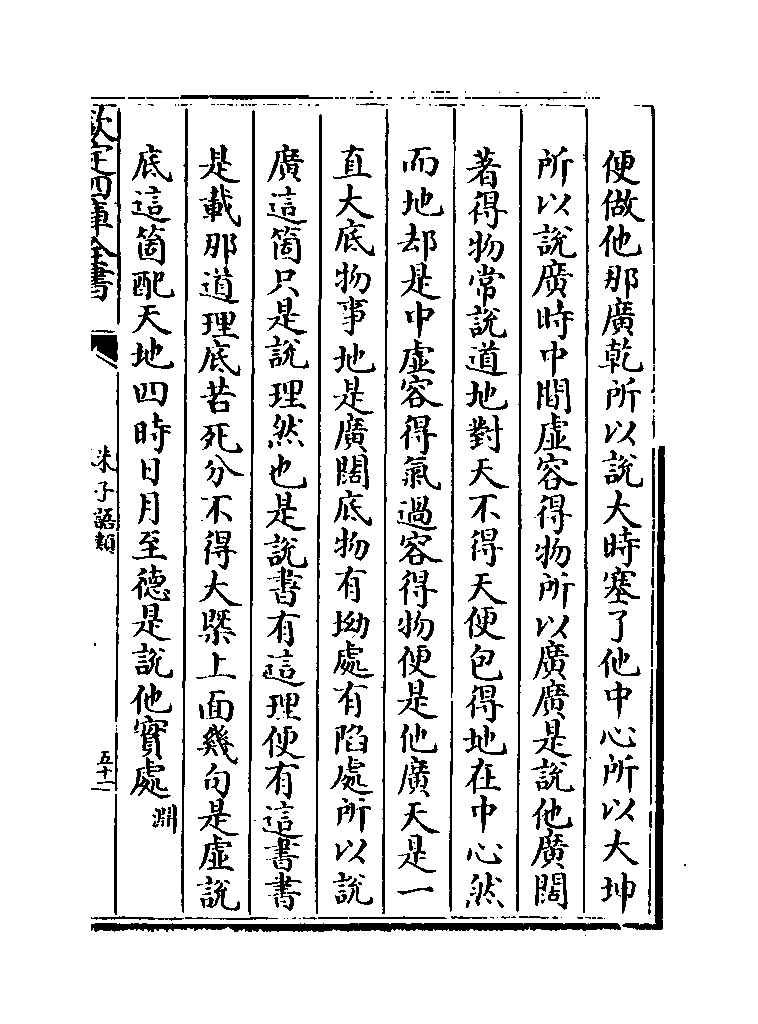 便做他那廣乾所以說大時塞了他中心所以大坤
所以說廣時中間虛容得物所以廣廣是說他廣闊
著得物常說道地對天不得天便包得地在中心然
而地却是中虛容得氣過容得物便是他廣天是一
直大底物事地是廣闊底物有坳處有陷處所以說
廣這箇只是說理然也是說書有這理便有這書書
是載那道理底若死分不得大槩上面幾句是虛說
底這箇配天地四時日月至德是說他實處淵
欽定四庫全書
朱子語類
五十一